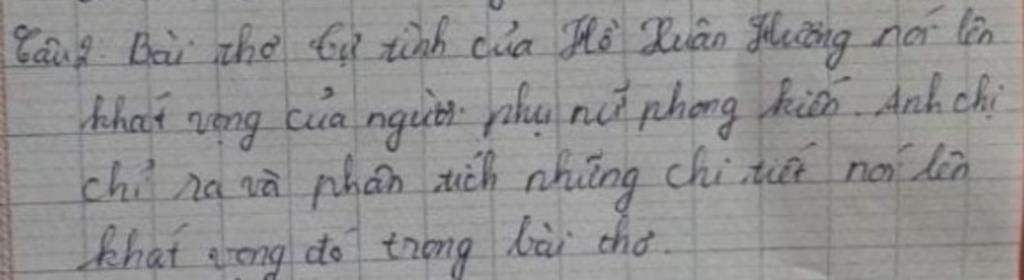 Câu 2: Bài thơ tự tình của Hồ Xuân Hương nói lên
khát vọng của người phụ nữ phong kiến. Anh chị
chỉ ra và phân tích những chi tiết nói lên
khát vọng đó trong bài thơ.